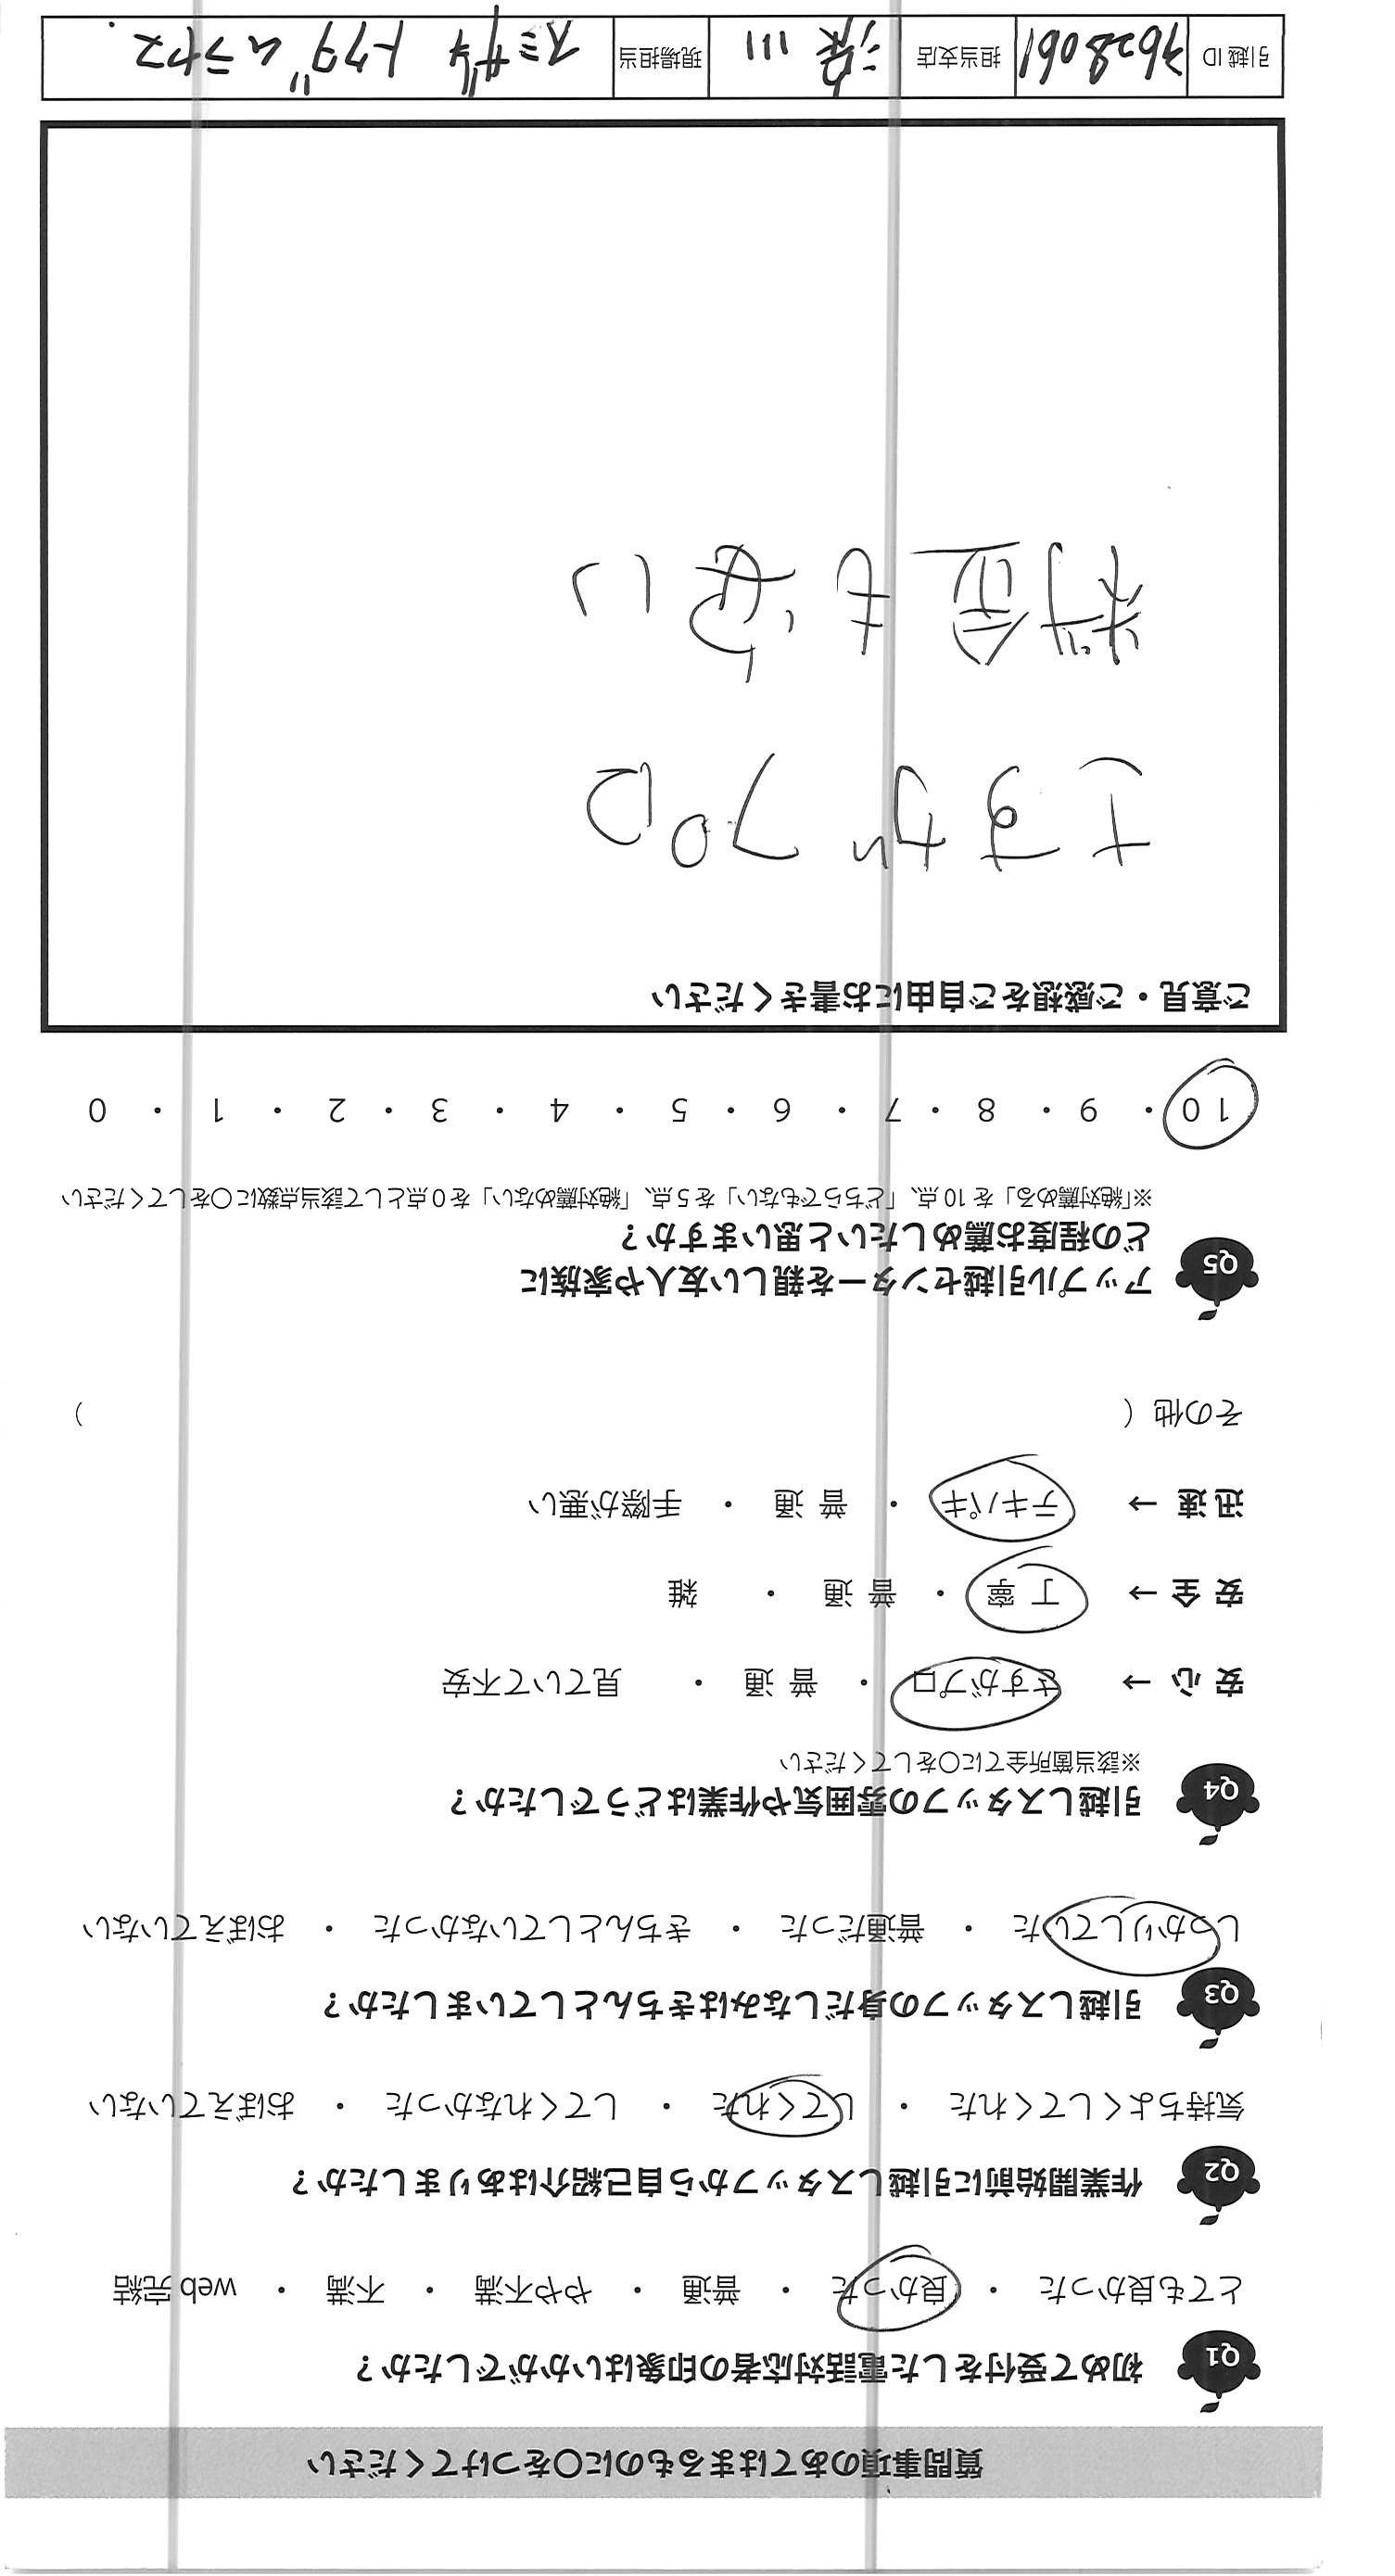 質問事項のあてはまるものに〇をつけてください
Q1 初めて受付をした電話対応者の印象はいかがでしたか？
とても良かった ・ 良かった ・ 普通 ・ やや不満 ・ 不満 ・ web完結
Q2 作業開始前に引越しスタッフから自己紹介はありましたか？
気持ちよくしてくれた ・ してくれた ・ してくれなかった ・ おぼえていない
Q3 引越しスタッフの身だしなみはきちんとしていましたか？
しっかりしていた ・ 普通だった ・ きちんとしていなかった ・ おぼえていない
Q4 引越しスタッフの雰囲気や作業はどうでしたか？
※該当箇所全てに〇をしてください
安 心 → さすがプロ ・ 普 通 ・ 見ていて不安
安 全 → 丁 寧 ・ 普 通 ・ 雑
迅 速 → テキパキ ・ 普 通 ・ 手際が悪い
その他（ ）
Q5 アップル引越センターを親しい友人や家族に
どの程度お薦めしたいと思いますか？
※「絶対薦める」を10点、「どちらでもない」を5点、「絶対薦めない」を0点として該当点数に〇をしてください
10 ・ 9 ・ 8 ・ 7 ・ 6 ・ 5 ・ 4 ・ 3 ・ 2 ・ 1 ・ 0
ご意見・ご感想をご自由にお書きください
さすが プロ
料金も安い
引越ID 7628061 担当支店 深川 現場担当